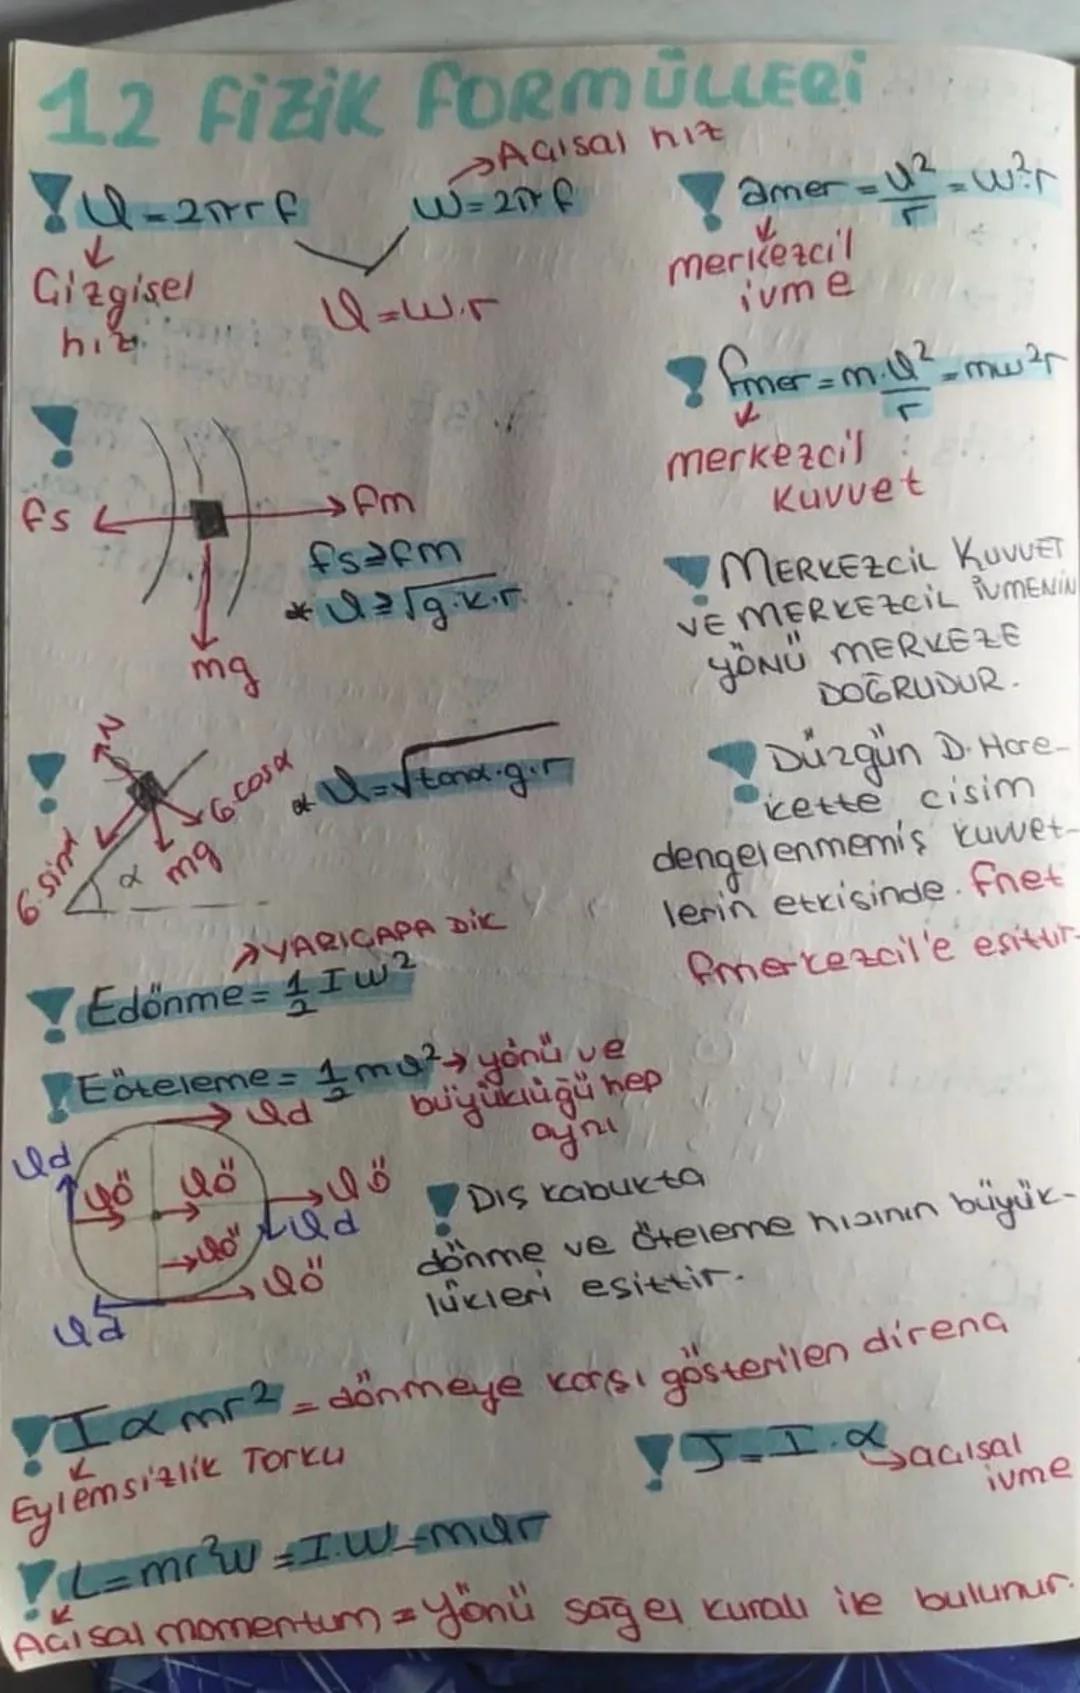 12 FİZİK FORMÜLLERİ
ϑ=2πrf
Çizgisel
hız
w=2πf
Açısal hız
ϑ=w.r
amer = ϑ²/r = w².r
merkezcil
ivme
fmer = m.ϑ²/r = mw²r
merkezcil
kuvvet
fs
fm
mg
fs≥fm
* ϑ≥√g.k.r
MERKEZCİL KUVVET
VE MERKEZCİL İVMENİN
YÖNÜ MERKEZE
DOĞRUDUR.
N
G.cosα
G.sinα
mg
α
* ϑ=√tanα.g.r
Düzgün D. Hare-
kette cisim
dengelenmemiş kuvvet-
lerin etkisinde. fnet
fmerkezcil'e eşittir.
YARIÇAPA DİK
Edönme= 1/2 I w²
Eöteleme= 1/2 mϑ² → yönü ve
büyüklüğü hep
aynı
ϑd
ϑd
ϑö
ϑö
ϑö
ϑd
ϑö
ϑö
ϑd
Dış kabukta
dönme ve öteleme hızının büyük-
lükleri eşittir.
I α mr² = dönmeye karşı gösterilen direnç
Eylemsizlik Torku
J=I.α
açısal
ivme
L=mr²w =I.w=mϑr
Açısal momentum = Yönü sağ el kuralı ile bulunur.